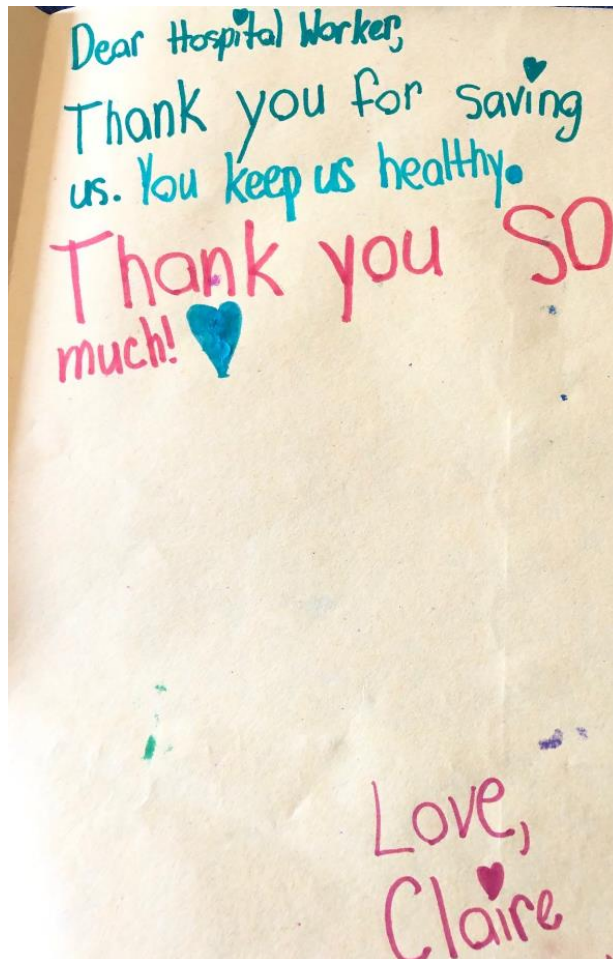 Dear Hospital Worker,
Thank you for saving
us. You keep us healthy.
Thank you SO
much!
Love,
Claire